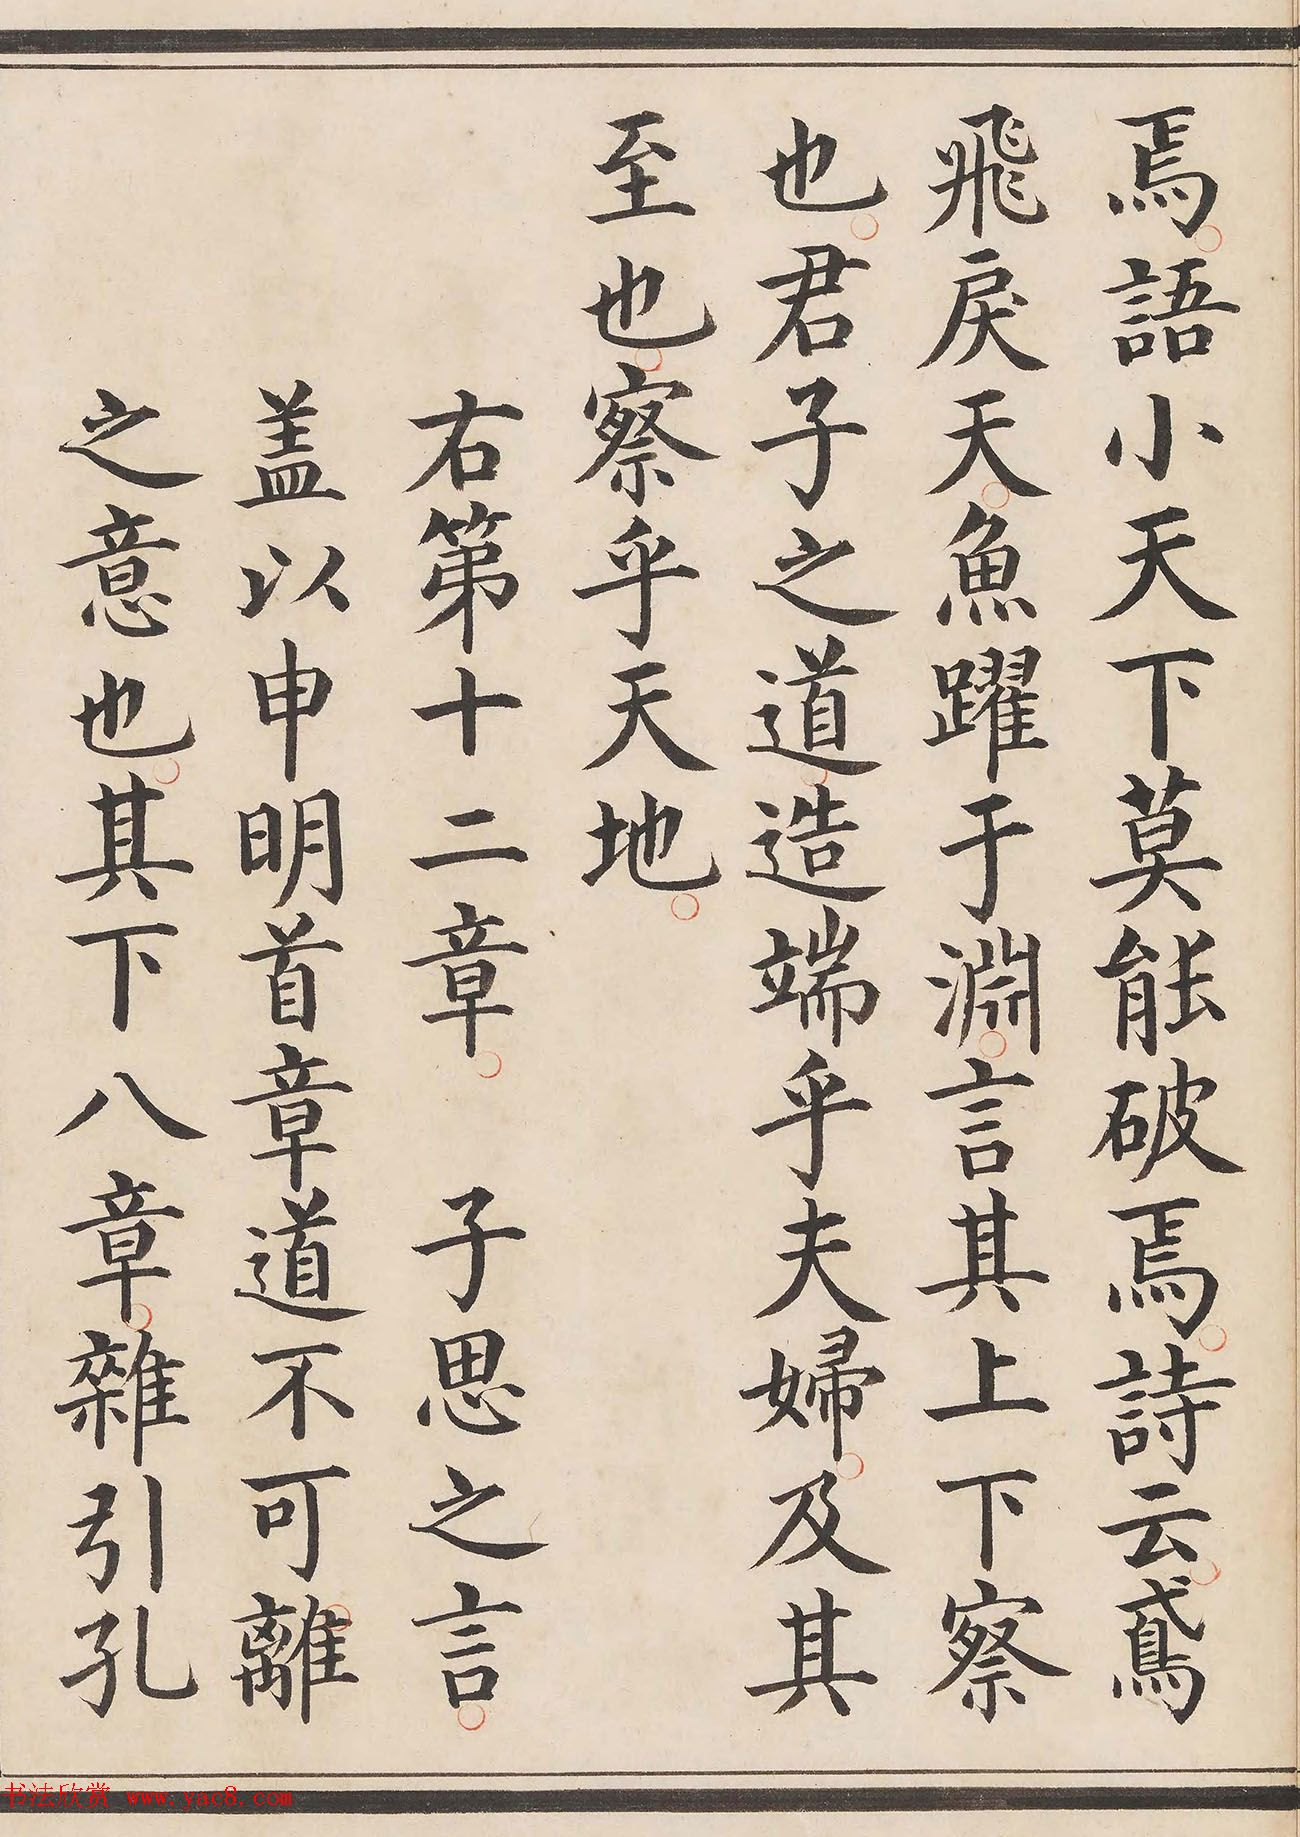 焉語小天下莫能破焉詩云鳶
飛戾天魚躍于淵言其上下察
也君子之道造端乎夫婦及其
至也察乎天地
右第十二章 子思之言
盖以申明首章道不可離
之意也其下八章雜引孔
书法欣赏 www.yac8.com